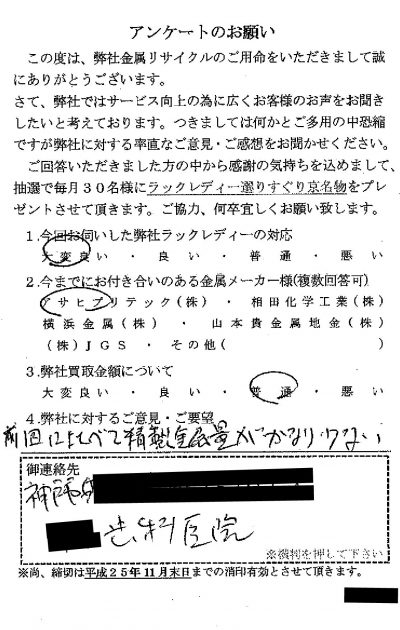 アンケートのお願い
この度は、弊社金属リサイクルのご用命をいただきまして誠
にありがとうございます。
さて、弊社ではサービス向上の為に広くお客様のお声をお聞き
したいと考えております。つきましては何かとご多用の中恐縮
ですが弊社に対する率直なご意見・ご感想をお聞かせください。
ご回答いただきました方の中から感謝の気持ちを込めまして、
抽選で毎月30名様にラックレディー選りすぐり京名物をプレ
ゼントさせて頂きます。ご協力、何卒宜しくお願い致します。
1.今回お伺いした弊社ラックレディーの対応
大変良い・良い・普通・悪い
2.今までにお付き合いのある金属メーカー様(複数回答可)
アサヒプリテック(株)・相田化学工業(株)
横浜金属(株)・山本貴金属地金(株)
(株)JGS・その他( )
3.弊社買取金額について
大変良い・良い・普通・悪い
4.弊社に対するご意見・ご要望
前回にくらべて精製金属量がかなり少ない
御連絡先
神
歯科医院
を押して下さい
※尚、締切は平成25年11月末日までの消印有効とさせて頂きます。